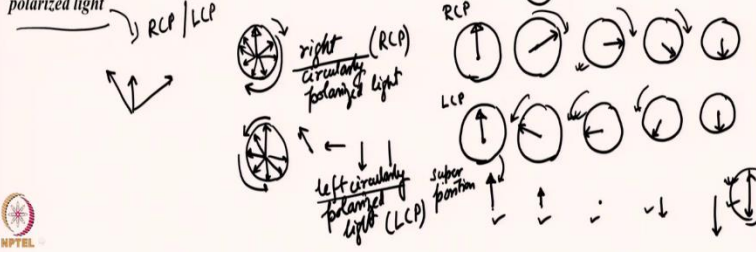 polarized light
RCP/LCP
right (RCP)
circularly
polarized
light
left circularly
polarized
light (LCP)
RCP
LCP
super
position
NPTEL